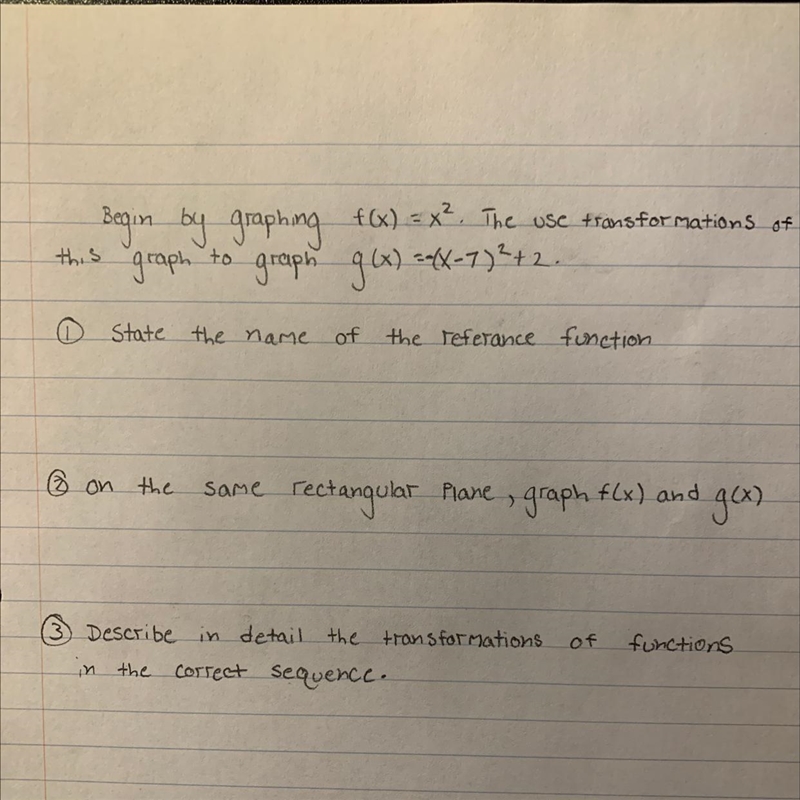 Begin by graphing f(x) = x². The use transformations of
this graph to graph g(x) = -(x-7)² + 2.
① State the name of the referance function
② on the same rectangular Plane, graph f(x) and g(x)
③ Describe in detail the transformations of functions
in the correct sequence.